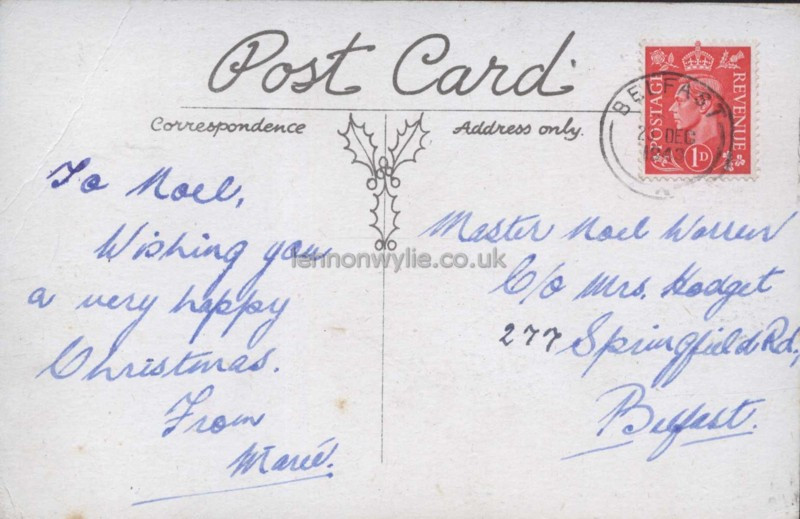 Post Card
Correspondence
Address only.
POSTAGE
REVENUE
1D
BELFAST
DEC
To Noel,
Wishing you
a very happy
Christmas.
From
Marie.
Master Noel Warren
C/o Mrs. Hodget
277 Springfield Rd,
Belfast.
lennonwylie.co.uk